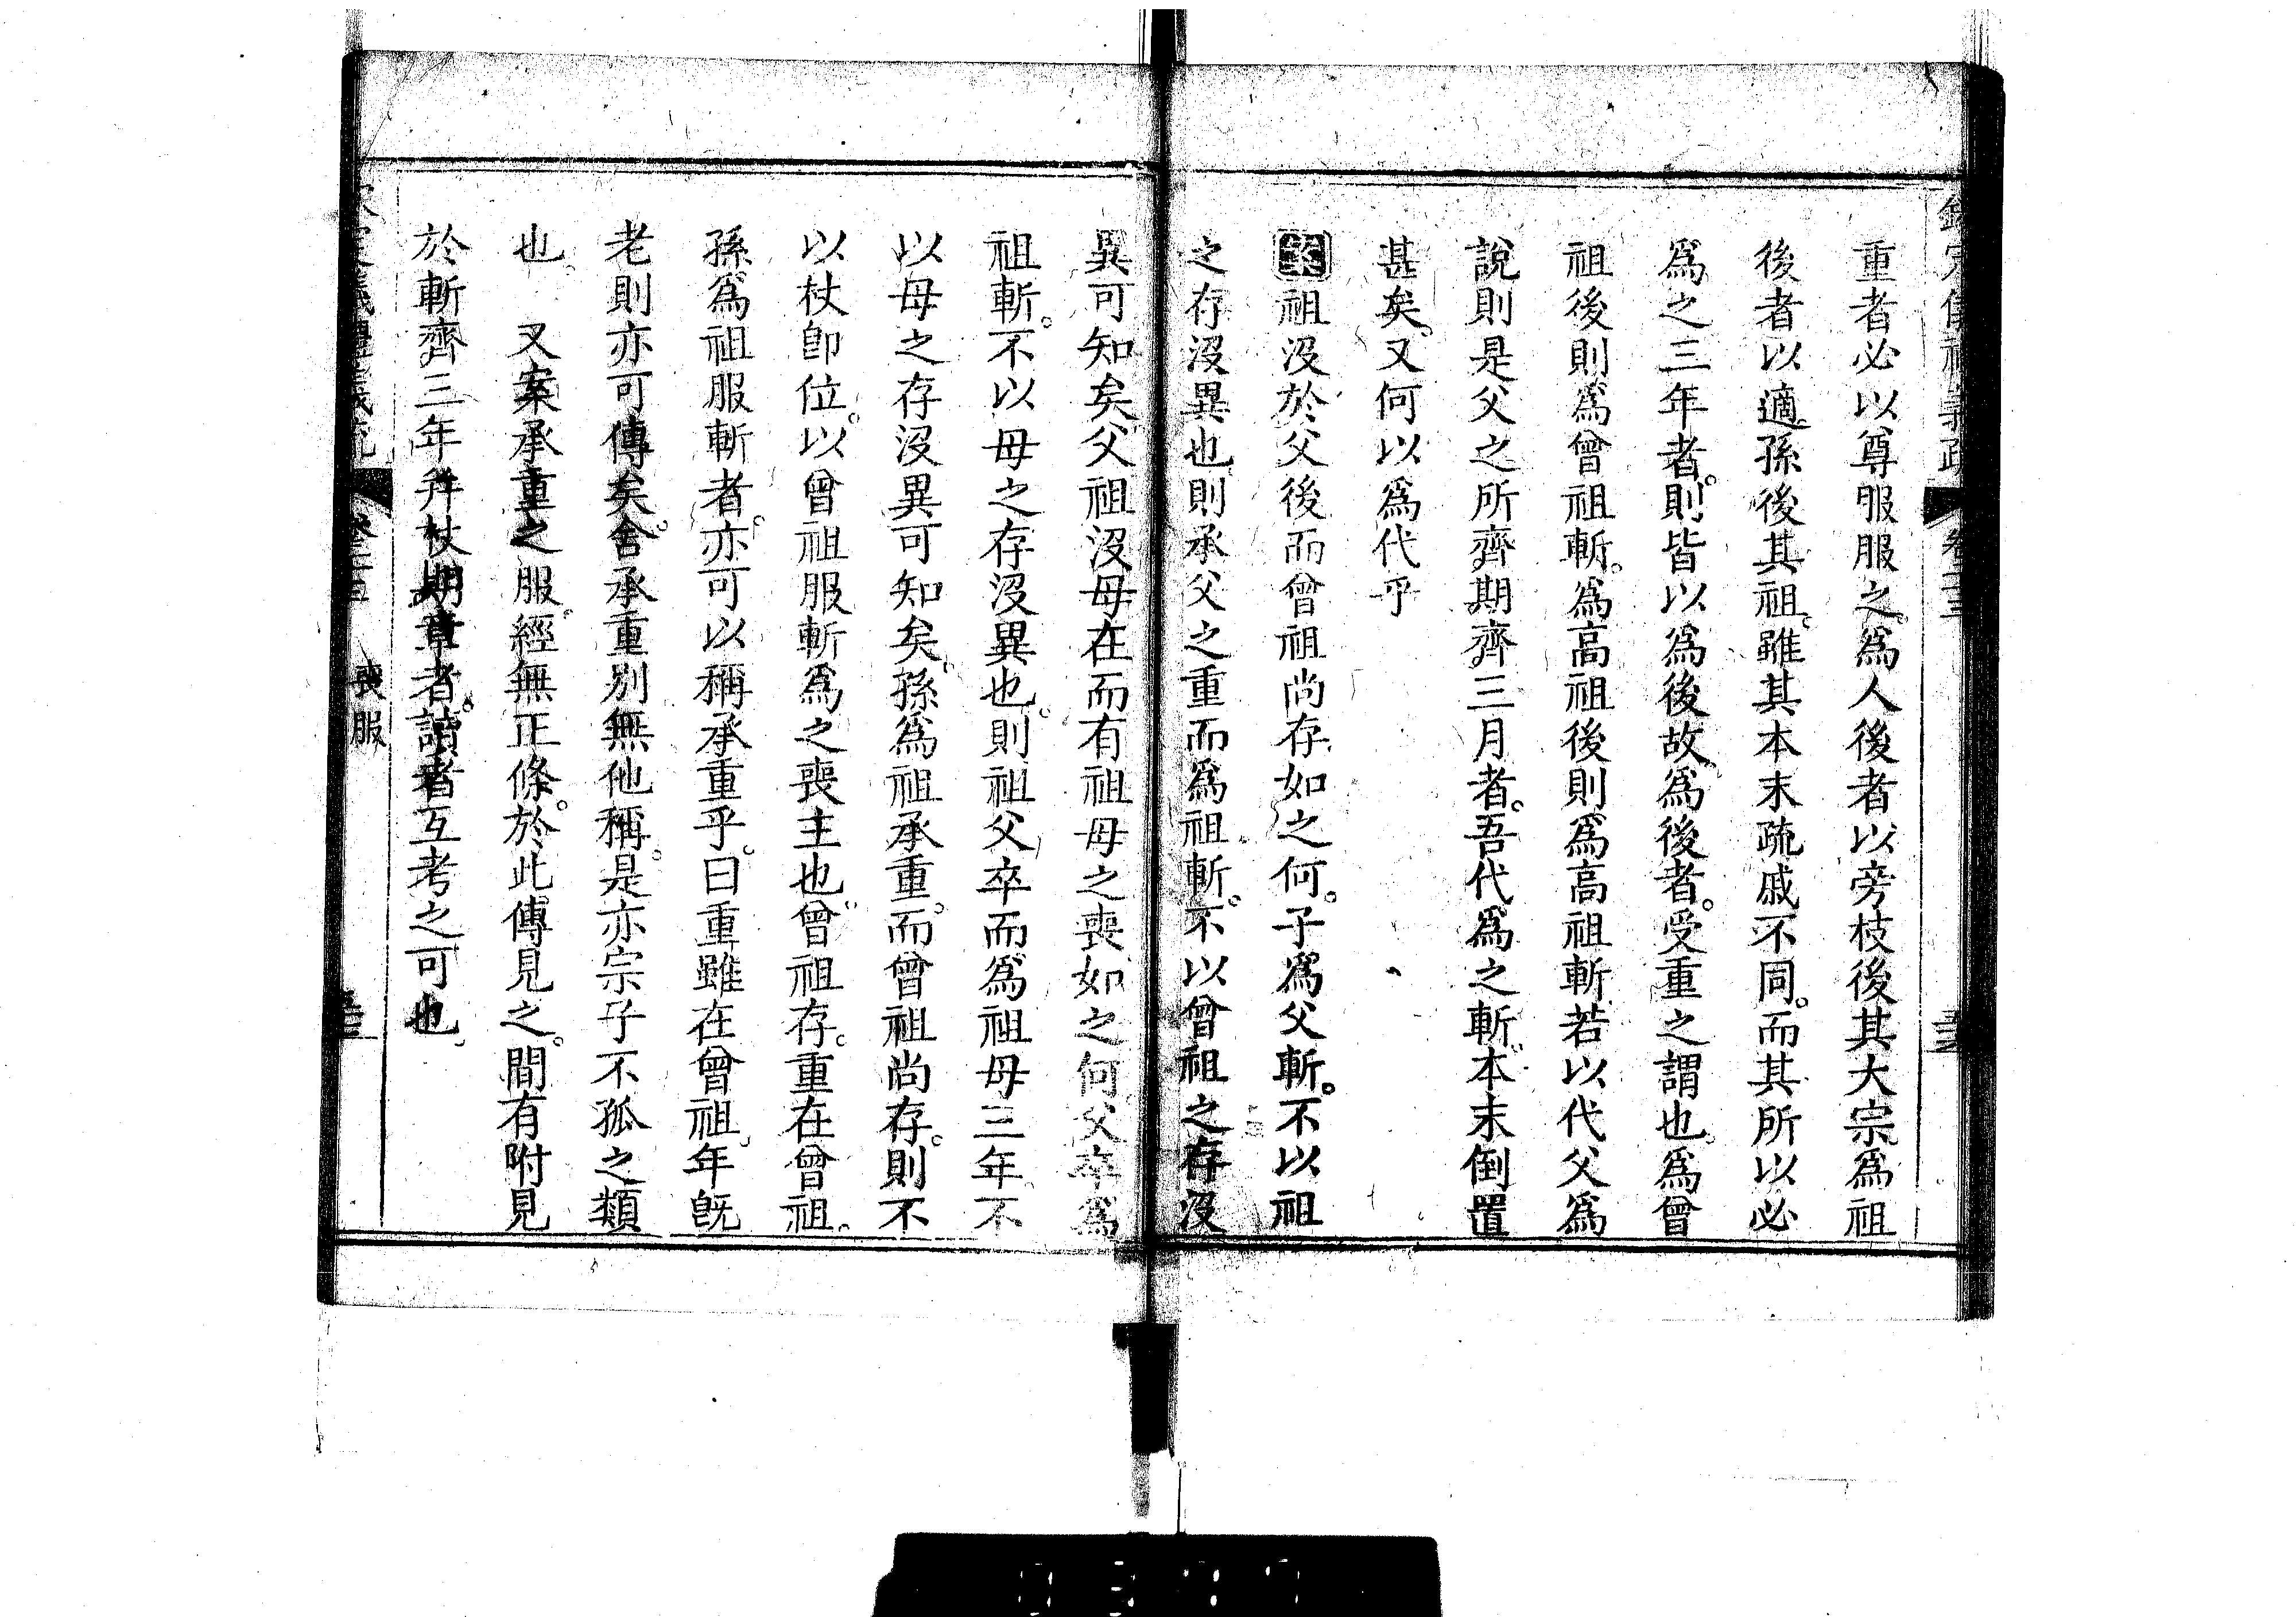 重者必以尊服服之。爲人後者以旁枝後其大宗爲祖
後者以適孫後其祖。雖其本末疏戚不同。而其所以必
爲之三年者。則皆以爲後故。爲後者。受重之謂也。爲曾
祖後則爲曾祖斬。爲高祖後則爲高祖斬若以代父爲
說則是父之所齊期齊三月者。吾代爲之斬。本末倒置
甚矣。又何以爲代乎
案祖沒於父後而曾祖尚存如之何。子爲父斬。不以祖
之存沒異也。則承父之重而爲祖斬。不以曾祖之存沒
異可知矣。父祖沒母在而有祖母之喪如之何父卒爲
祖斬。不以母之存沒異也。則祖父卒而爲祖母三年。不
以母之存沒異可知矣。孫爲祖承重。而曾祖尚存。則不
以杖卽位。以曾祖服斬爲之喪主也。曾祖存。重在曾祖。
孫爲祖服斬者。亦可以稱承重乎。曰重雖在曾祖。年旣
老則亦可傳矣。舍承重別無他稱。是亦宗子不孤之類
也。　又案承重之服。經無正條。於此傳見之。間有附見
於斬齊三年并杖期章者。讀者互考之可也。
喪服